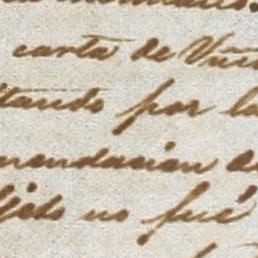 carta de
tando por la
mendacion de
jeto no fué